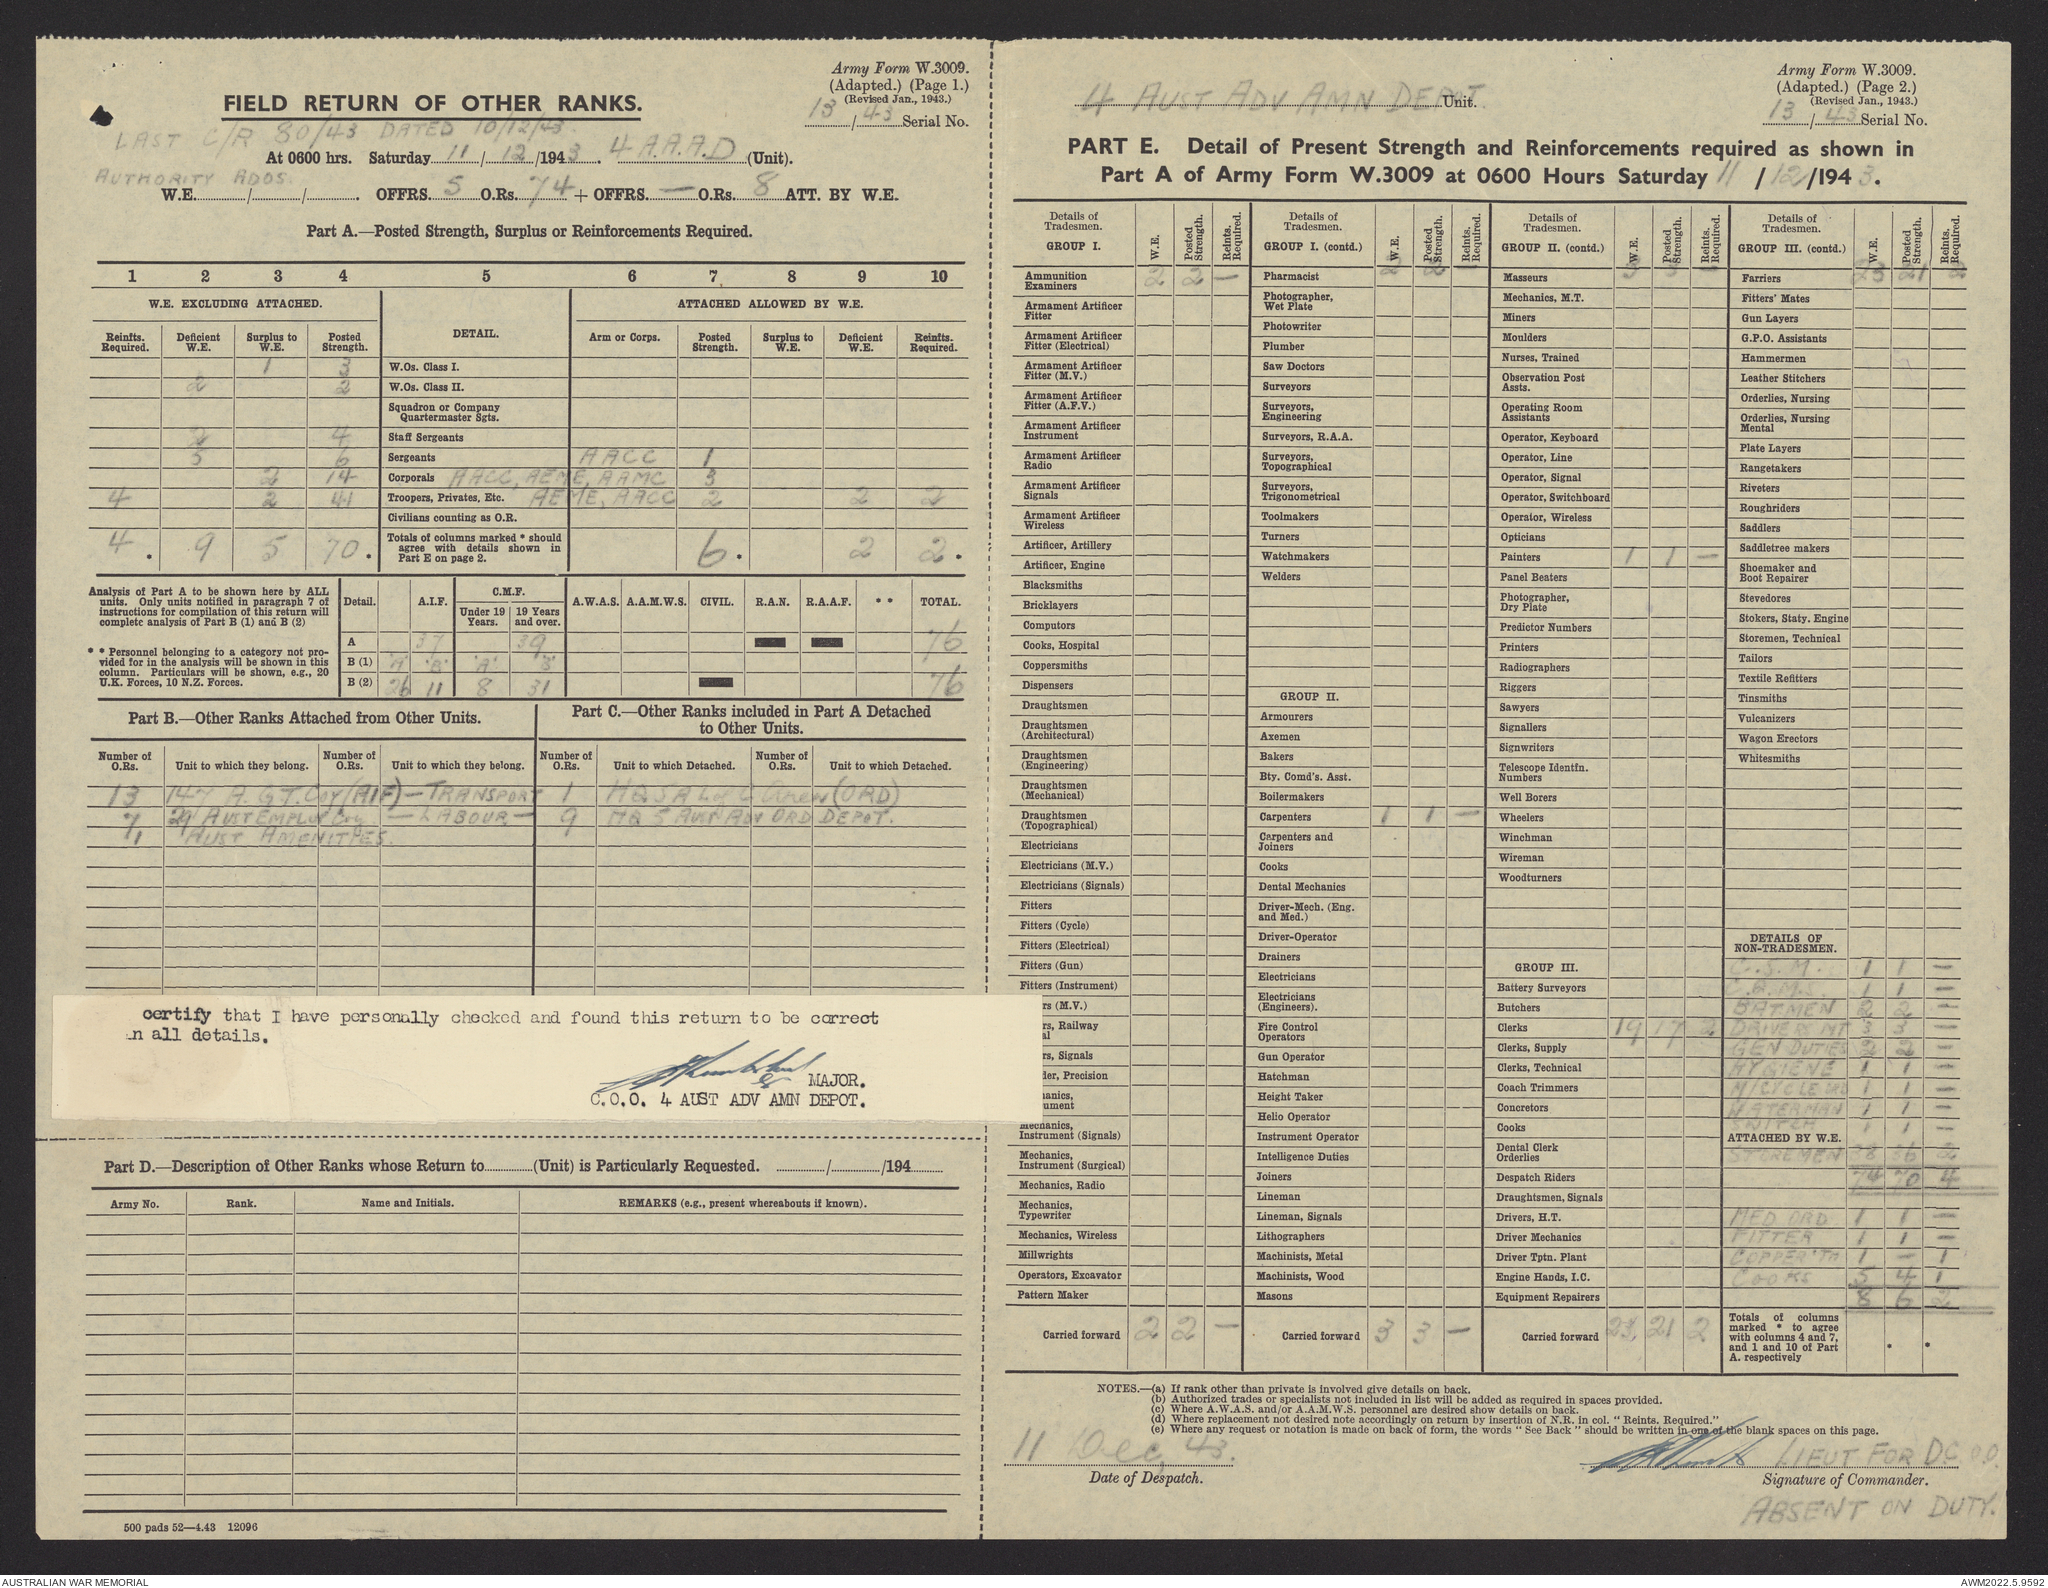 Army Form W.3009.
(Adapted.) (Page 1.)
(Revised Jan., 1943.)
13/43 Serial No.
FIELD RETURN OF OTHER RANKS.
LAST C/R 80/43 DATED 10/12/43.
At 0600 hrs. Saturday 11/12/1943. 4 A.A.A.D (Unit).
AUTHORITY ADOS.
W.E. / / . OFFRS. 5 O.Rs. 74 + OFFRS. — O.Rs. 8 ATT. BY W.E.
Part A.—Posted Strength, Surplus or Reinforcements Required.
1 2 3 4 5 6 7 8 9 10
W.E. EXCLUDING ATTACHED. DETAIL. ATTACHED ALLOWED BY W.E.
Reinfts. Required. Deficient W.E. Surplus to W.E. Posted Strength. Arm or Corps. Posted Strength. Surplus to W.E. Deficient W.E. Reinfts. Required.
1 3 W.Os. Class I.
2 2 W.Os. Class II.
Squadron or Company
Quartermaster Sgts.
2 4 Staff Sergeants
5 6 Sergeants AACC 1
2 14 Corporals AACC, AEME, AAMC 3
4 2 41 Troopers, Privates, Etc. AEME, AACC 2 2 2
Civilians counting as O.R.
4. 9 5 70. Totals of columns marked * should
agree with details shown in
Part E on page 2. 6. 2 2.
Analysis of Part A to be shown here by ALL
units. Only units notified in paragraph 7 of
instructions for compilation of this return will
complete analysis of Part B (1) and B (2)
* * Personnel belonging to a category not pro-
vided for in the analysis will be shown in this
column. Particulars will be shown, e.g., 20
U.K. Forces, 10 N.Z. Forces.
Detail. A.I.F. C.M.F. Under 19 Years. 19 Years and over. A.W.A.S. A.A.M.W.S. CIVIL. R.A.N. R.A.A.F. * * TOTAL.
A 37 39 76
B (1) 'A' 'B' 'A' 'B'
B (2) 26 11 8 31 76
Part B.—Other Ranks Attached from Other Units.
Number of O.Rs. Unit to which they belong. Number of O.Rs. Unit to which they belong.
13 147 A.G.T. Coy (AIF) — TRANSPORT
7 29 AUST EMPLOY Coy — LABOUR —
1 AUST AMENITIES.
Part C.—Other Ranks included in Part A Detached
to Other Units.
Number of O.Rs. Unit to which Detached. Number of O.Rs. Unit to which Detached.
1 HQ 5 A L of C Area (ORD)
9 HQ 5 AUST ADV ORD DEPOT.
certify that I have personally checked and found this return to be correct
in all details.
MAJOR.
C.O.O. 4 AUST ADV AMN DEPOT.
Part D.—Description of Other Ranks whose Return to (Unit) is Particularly Requested. / /194
Army No. Rank. Name and Initials. REMARKS (e.g., present whereabouts if known).
500 pads 52—4.43 12096
Army Form W.3009.
(Adapted.) (Page 2.)
(Revised Jan., 1943.)
13/43 Serial No.
4 AUST ADV AMN DEPOT. Unit.
PART E. Detail of Present Strength and Reinforcements required as shown in
Part A of Army Form W.3009 at 0600 Hours Saturday 11/12/1943.
Details of Tradesmen. GROUP I. W.E. Posted Strength. Reints. Required.
Ammunition Examiners 2 2 —
Armament Artificer Fitter
Armament Artificer Fitter (Electrical)
Armament Artificer Fitter (M.V.)
Armament Artificer Fitter (A.F.V.)
Armament Artificer Instrument
Armament Artificer Radio
Armament Artificer Signals
Armament Artificer Wireless
Artificer, Artillery
Artificer, Engine
Blacksmiths
Bricklayers
Computors
Cooks, Hospital
Coppersmiths
Dispensers
Draughtsmen
Draughtsmen (Architectural)
Draughtsmen (Engineering)
Draughtsmen (Mechanical)
Draughtsmen (Topographical)
Electricians
Electricians (M.V.)
Electricians (Signals)
Fitters
Fitters (Cycle)
Fitters (Electrical)
Fitters (Gun)
Fitters (Instrument)
rs (M.V.)
rs, Railway
al
rs, Signals
der, Precision
anics,
ument
Mechanics, Instrument (Signals)
Mechanics, Instrument (Surgical)
Mechanics, Radio
Mechanics, Typewriter
Mechanics, Wireless
Millwrights
Operators, Excavator
Pattern Maker
Carried forward 2 2 —
Details of Tradesmen. GROUP I. (contd.) W.E. Posted Strength. Reints. Required.
Pharmacist 2 2 —
Photographer, Wet Plate
Photowriter
Plumber
Saw Doctors
Surveyors
Surveyors, Engineering
Surveyors, R.A.A.
Surveyors, Topographical
Surveyors, Trigonometrical
Toolmakers
Turners
Watchmakers
Welders
GROUP II.
Armourers
Axemen
Bakers
Bty. Comd's. Asst.
Boilermakers
Carpenters 1 1 —
Carpenters and Joiners
Cooks
Dental Mechanics
Driver-Mech. (Eng. and Med.)
Driver-Operator
Drainers
Electricians
Electricians (Engineers).
Fire Control Operators
Gun Operator
Hatchman
Height Taker
Helio Operator
Instrument Operator
Intelligence Duties
Joiners
Lineman
Lineman, Signals
Lithographers
Machinists, Metal
Machinists, Wood
Masons
Carried forward 3 3 —
Details of Tradesmen. GROUP II. (contd.) W.E. Posted Strength. Reints. Required.
Masseurs 3 3 —
Mechanics, M.T.
Miners
Moulders
Nurses, Trained
Observation Post Assts.
Operating Room Assistants
Operator, Keyboard
Operator, Line
Operator, Signal
Operator, Switchboard
Operator, Wireless
Opticians
Painters 1 1 —
Panel Beaters
Photographer, Dry Plate
Predictor Numbers
Printers
Radiographers
Riggers
Sawyers
Signallers
Signwriters
Telescope Identfn. Numbers
Well Borers
Wheelers
Winchman
Wireman
Woodturners
GROUP III.
Battery Surveyors
Butchers
Clerks 19 17 2
Clerks, Supply
Clerks, Technical
Coach Trimmers
Concretors
Cooks
Dental Clerk Orderlies
Despatch Riders
Draughtsmen, Signals
Drivers, H.T.
Driver Mechanics
Driver Tptn. Plant
Engine Hands, I.C.
Equipment Repairers
Carried forward 23 21 2
Details of Tradesmen. GROUP III. (contd.) W.E. Posted Strength. Reints. Required.
Farriers 23 21 2
Fitters' Mates
Gun Layers
G.P.O. Assistants
Hammermen
Leather Stitchers
Orderlies, Nursing
Orderlies, Nursing Mental
Plate Layers
Rangetakers
Riveters
Roughriders
Saddlers
Saddletree makers
Shoemaker and Boot Repairer
Stevedores
Stokers, Staty. Engine
Storemen, Technical
Tailors
Textile Refitters
Tinsmiths
Vulcanizers
Wagon Erectors
Whitesmiths
DETAILS OF NON-TRADESMEN.
C.S.M. 1 1 —
C.Q.M.S. 1 1 —
BATMEN 2 2 —
DRIVERS MT 3 3 —
GEN DUTIES 2 2 —
HYGIENE 1 1 —
M/CYCLE ORD 1 1 —
WATERMAN 1 1 —
SWITCH 1 1 —
ATTACHED BY W.E.
STOREMEN 38 36 2
74 70 4
MED ORD 1 1 —
FITTER 1 1 —
COPPER'TH 1 — 1
COOKS 5 4 1
8 6 2
Totals of columns
marked * to agree
with columns 4 and 7,
and 1 and 10 of Part
A. respectively
NOTES.—(a) If rank other than private is involved give details on back.
(b) Authorized trades or specialists not included in list will be added as required in spaces provided.
(c) Where A.W.A.S. and/or A.A.M.W.S. personnel are desired show details on back.
(d) Where replacement not desired note accordingly on return by insertion of N.R. in col. "Reints. Required."
(e) Where any request or notation is made on back of form, the words "See Back" should be written in one of the blank spaces on this page.
11 Dec, 43.
Date of Despatch.
LIEUT FOR D.C.O.O.
Signature of Commander.
ABSENT ON DUTY.
AUSTRALIAN WAR MEMORIAL
AWM2022.5.9592